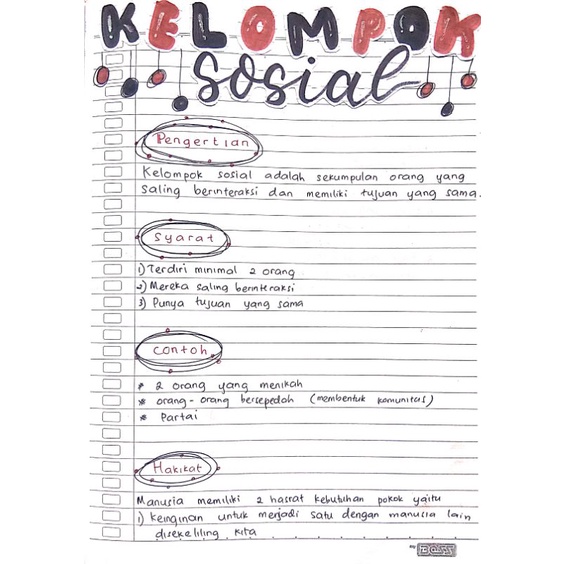 KELOMPOK
sosial
Pengertian
Kelompok sosial adalah sekumpulan orang yang
saling berinteraksi dan memiliki tujuan yang sama.
Syarat
1) Terdiri minimal 2 orang
2) Mereka saling berinteraksi
3) Punya tujuan yang sama
Contoh
* 2 orang yang menikah
* orang-orang bersepedah (membentuk komunitas)
* Partai
Hakikat
Manusia memiliki 2 hasrat kebutuhan pokok yaitu
1) Keinginan untuk menjadi satu dengan manusia lain
disekeliling kita